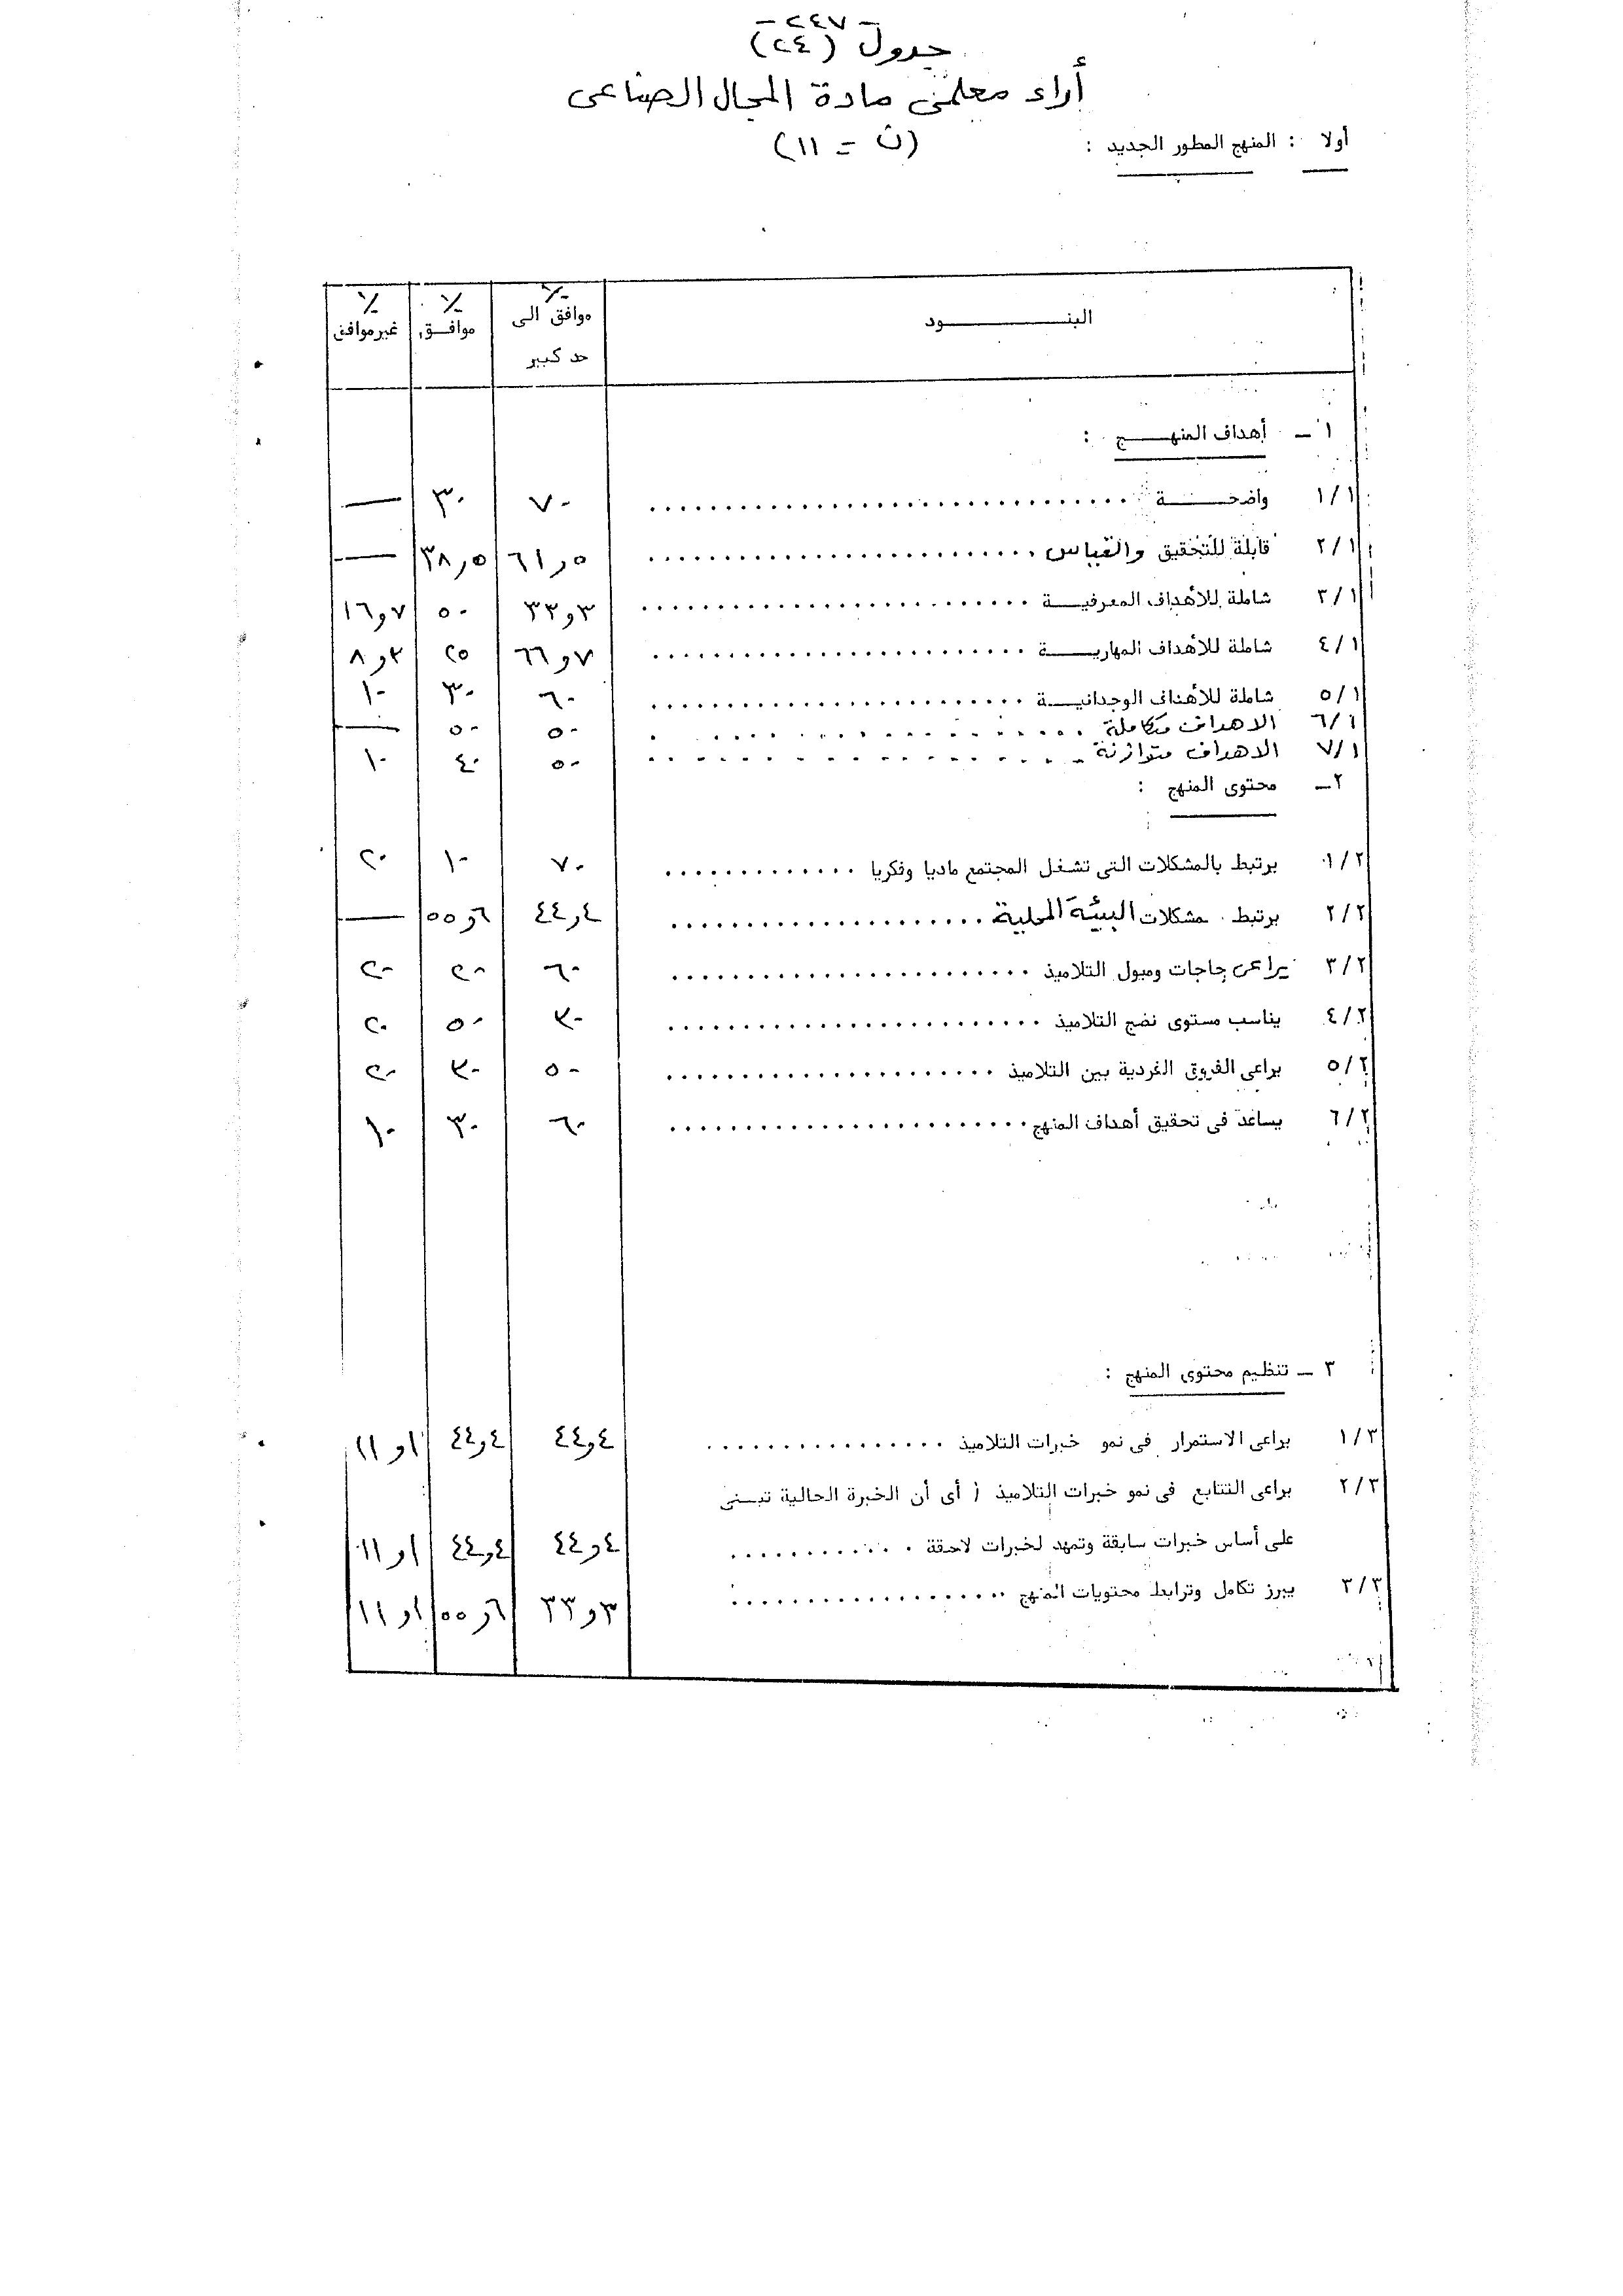 - ٢٤٧ -
جدول (٢٤)
أراء معلمى مادة المجال الصناعى
(ن = ١١)
أولا : المنهج المطور الجديد :
البنـــــــود % موافق الى حد كبير % موافـق % غير موافق
١ - أهداف المنهـــج :
١/١ واضحـــة .......... ٧٠ ٣٠ —
٢/١ قابلة للتحقيق والقياس .......... ٦١٫٥ ٣٨٫٥ —
٣/١ شاملة للأهداف المعرفيـــة .......... ٣٣و٣ ٥٠ ١٦و٧
٤/١ شاملة للأهداف المهاريـــة .......... ٦٦و٧ ٢٥ ٨و٣
٥/١ شاملة للأهداف الوجدانيـــة .......... ٦٠ ٣٠ ١٠
٦/١ الاهداف متكاملة .......... ٥٠ ٥٠ —
٧/١ الاهداف متوازنة .......... ٥٠ ٤٠ ١٠
٢ - محتوى المنهج :
١/٢ يرتبط بالمشكلات التى تشغل المجتمع ماديا وفكريا .......... ٧٠ ١٠ ٢٠
٢/٢ يرتبط بمشكلات البيئة المحلية .......... ٤٤و٤ ٥٥و٦ —
٣/٢ يراعى حاجات وميول التلاميذ .......... ٦٠ ٢٠ ٢٠
٤/٢ يناسب مستوى نضج التلاميذ .......... ٣٠ ٥٠ ٢٠
٥/٢ يراعى الفروق الفردية بين التلاميذ .......... ٥٠ ٣٠ ٢٠
٦/٢ يساعد فى تحقيق أهداف المنهج .......... ٦٠ ٣٠ ١٠
٣ - تنظيم محتوى المنهج :
١/٣ يراعى الاستمرار فى نمو خبرات التلاميذ .......... ٤٤و٤ ٤٤و٤ ١١و١
٢/٣ يراعى التتابع فى نمو خبرات التلاميذ ( أى أن الخبرة الحالية تبـنى
على أساس خبرات سابقة وتمهد لخبرات لاحقة .......... ٤٤و٤ ٤٤و٤ ١١و١
٣/٣ يبرز تكامل وترابط محتويات المنهج .......... ٣٣و٣ ٥٥و٦ ١١و١